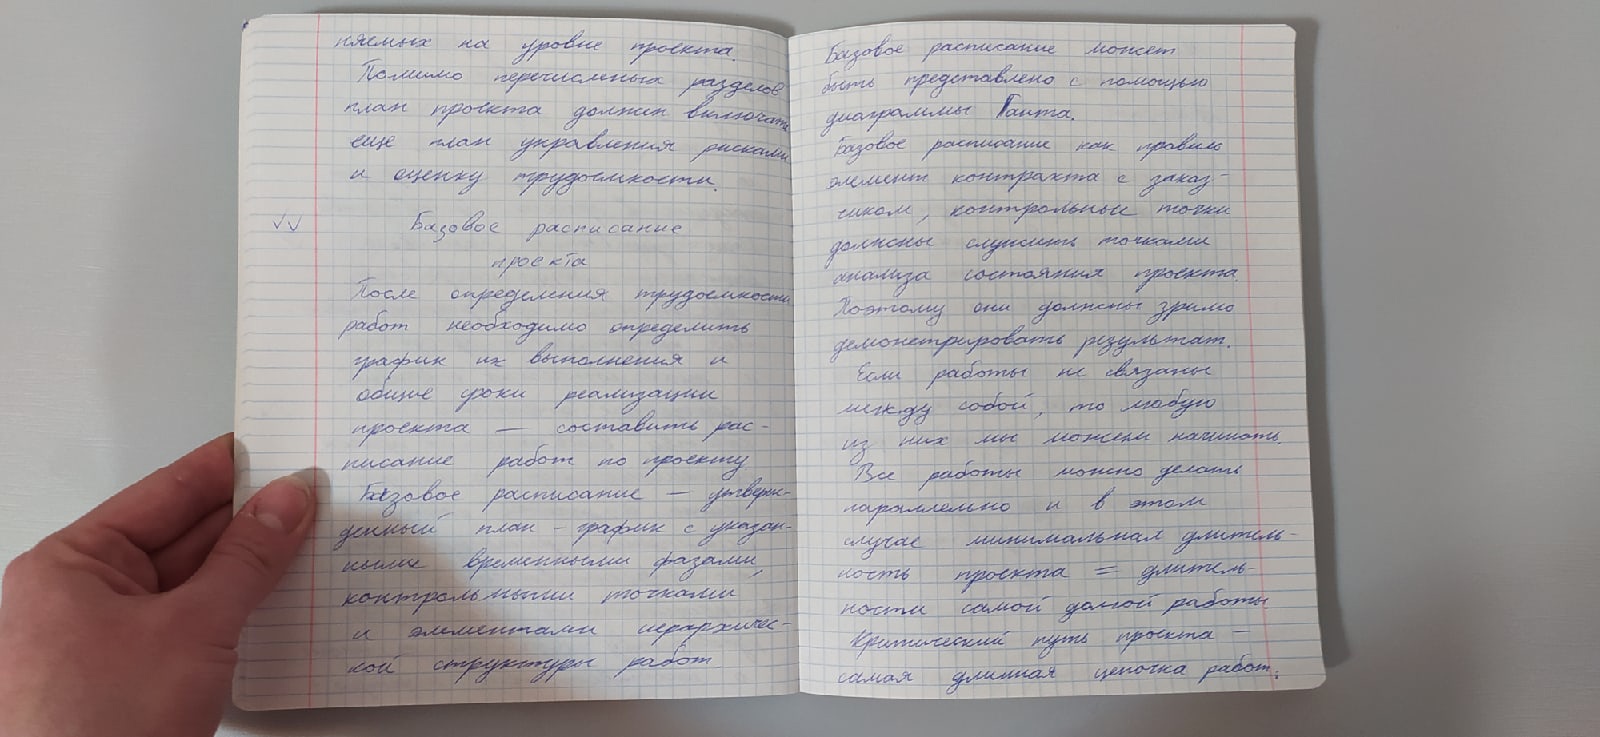 няемых на уровне проекта.
Помимо перечисленных разделов
план проекта должен включать
еще план управления рисками
и оценку трудоемкости.
√√ Базовое расписание
проекта
После определения трудоемкости
работ необходимо определить
график их выполнения и
общие сроки реализации
проекта — составить рас-
писание работ по проекту
Базовое расписание — утверж-
денный план - график с указан-
ными временными фазами,
контрольными точками
и элементами иерархичес-
кой структуры работ
Базовое расписание может
быть представлено с помощью
диаграммы Ганта.
Базовое расписание как правило
элемент контракта с заказ-
чиком, контрольные точки
должны служить точками
анализа состояния проекта.
Поэтому они должны зримо
демонстрировать результат.
Если работы не связаны
между собой, то любую
из них мы можем начинать.
Все работы можно делать
параллельно и в этом
случае минимальная длитель-
ность проекта = длитель-
ности самой долгой работы
Критический путь проекта —
самая длинная цепочка работ.